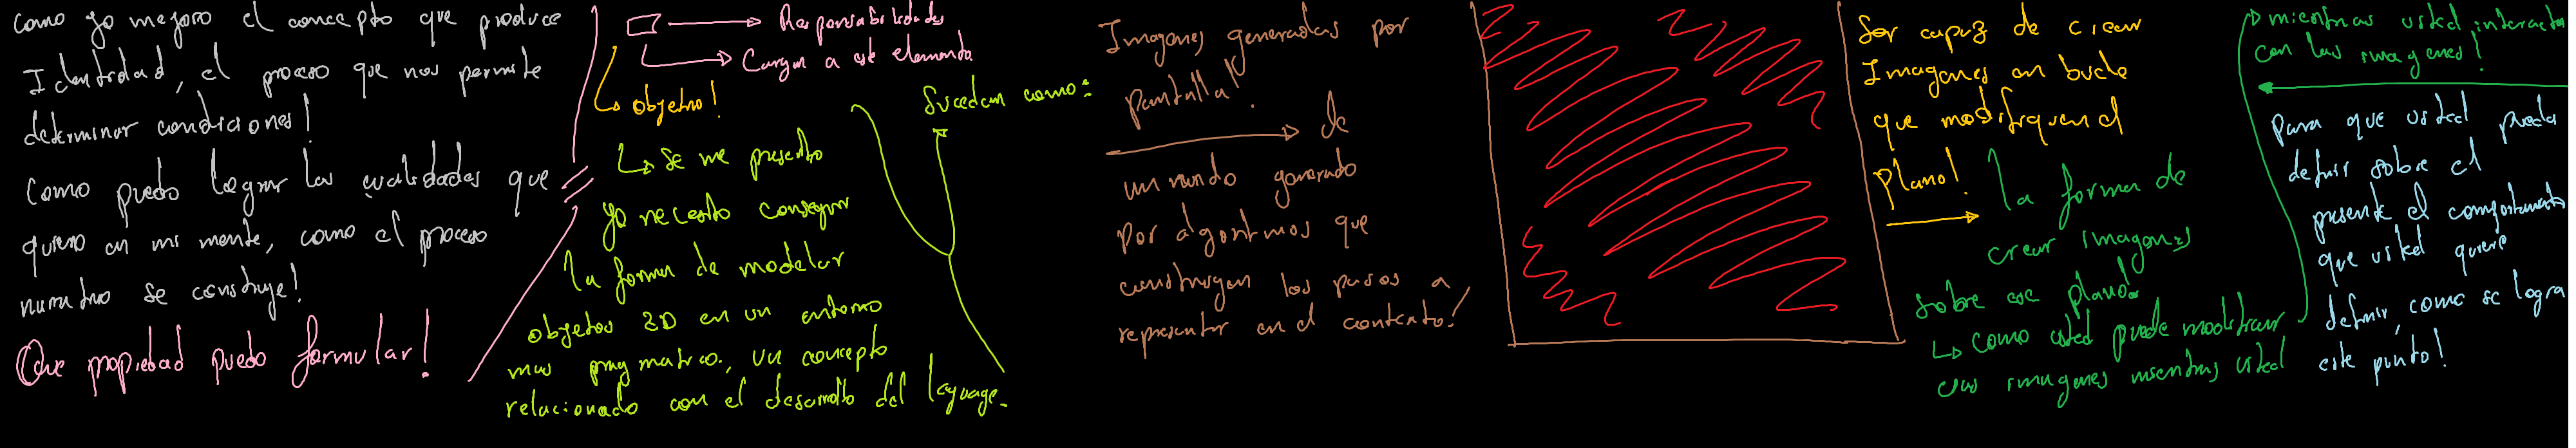 Como yo mejoro el concepto que produce
Identidad, el proceso que nos permite
determinar condiciones!
Como puedo lograr las cualidades que
quiero en mi mente, como el proceso
narrativo se construye!
Que propiedad puedo formular!
Responsabilidades
Cargan a este elemento
objetivo!
Se me presento
yo necesito conseguir
la forma de modelar
objetos 2D en un entorno
mas pragmatico, un concepto
relacionado con el desarrollo del
Sucedan como:
Imagenes generadas por
pantalla!
de
un mundo generado
por algoritmos que
construyen los pasos a
representar en el contexto!
Ser capaz de crear
Imagenes en bucle
que modifiquen el
Plano!
la forma de
crear imagenes
sobre ese plano.
como usted puede modificar
esas imagenes mientras usted
mientras usted interactua
con las imagenes!
Para que usted pueda
definir sobre el
presente el comportamiento
que usted quiere
definir, como se logra
este punto!